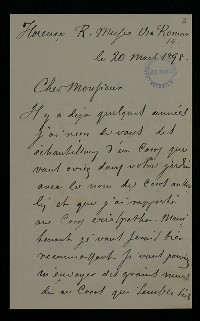 3
Florence R. Museo Via Romana
19
le 20 Mars 1898.
Cher Monsieur
Il y a déjà quelques années
j'ai reçu de vous des
échantillons d'un Cocos que
vous aviez dans votre jardin
avec le nom de Cocos
et que j'ai rapporté
au Cocos eriospatha. Main
tenant je vous serais très
reconnaissant si vous pouviez
m'envoyer des graines mûres
de ce Cocos qui semble très